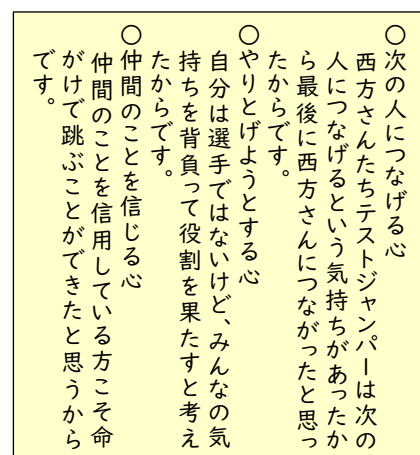 〇次の人につなげる心
西方さんたちテストジャンパーは次の
人につなげるという気持ちがあったか
ら最後に西方さんにつながったと思っ
たからです。
〇やりとげようとする心
自分は選手ではないけど、みんなの気
持ちを背負って役割を果たすと考え
たからです。
〇仲間のことを信じる心
仲間のことを信用している方こそ命
がけで跳ぶことができたと思うから
です。